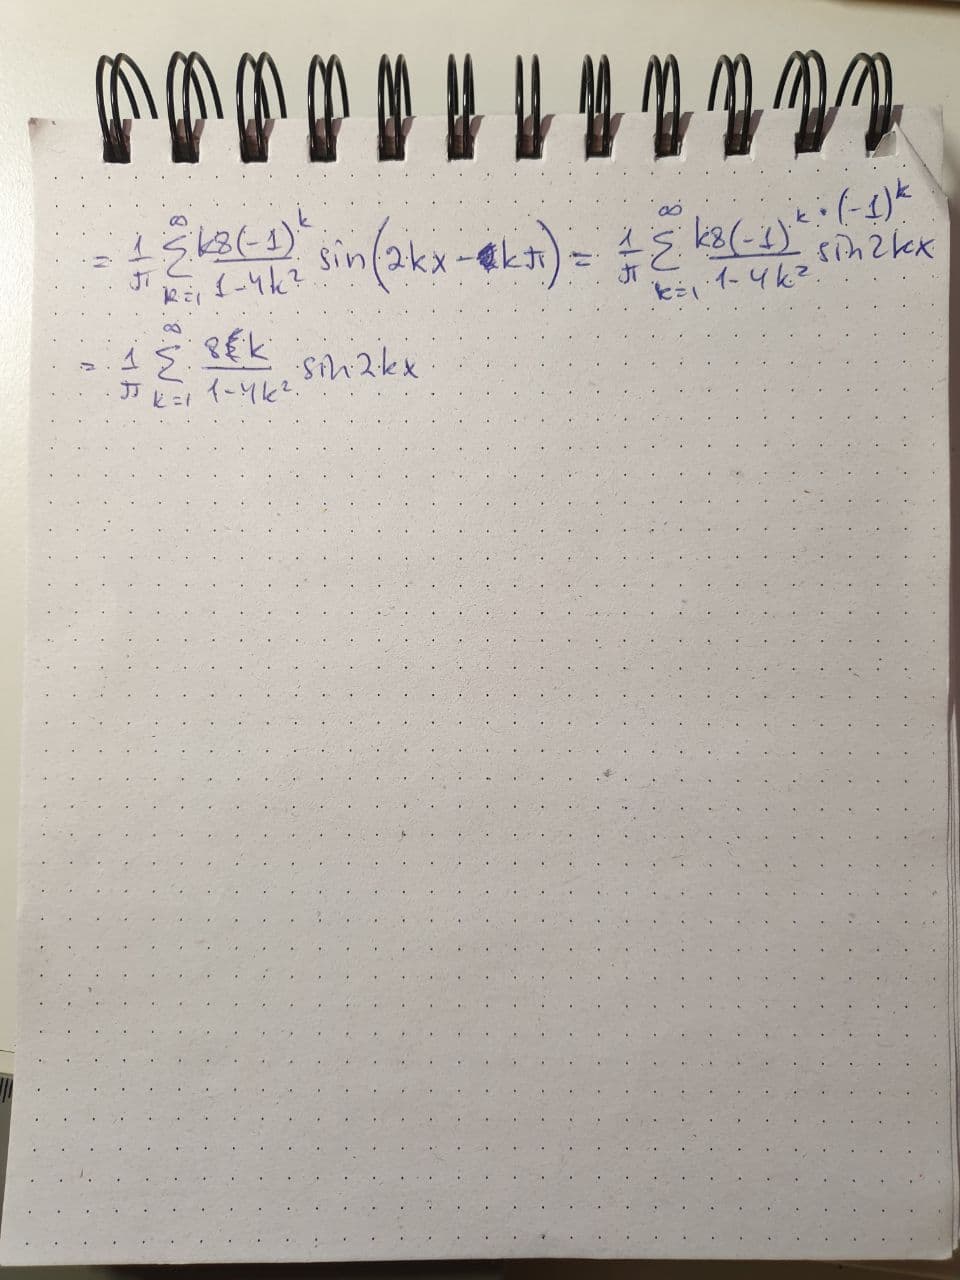 = 1/π ∑_{k=1}^{∞} k8(-1)^k/(1-4k²) sin(2kx - kπ) = 1/π ∑_{k=1}^{∞} k8(-1)^k·(-1)^k/(1-4k²) sin2kx
= 1/π ∑_{k=1}^{∞} 8k/(1-4k²) sin2kx